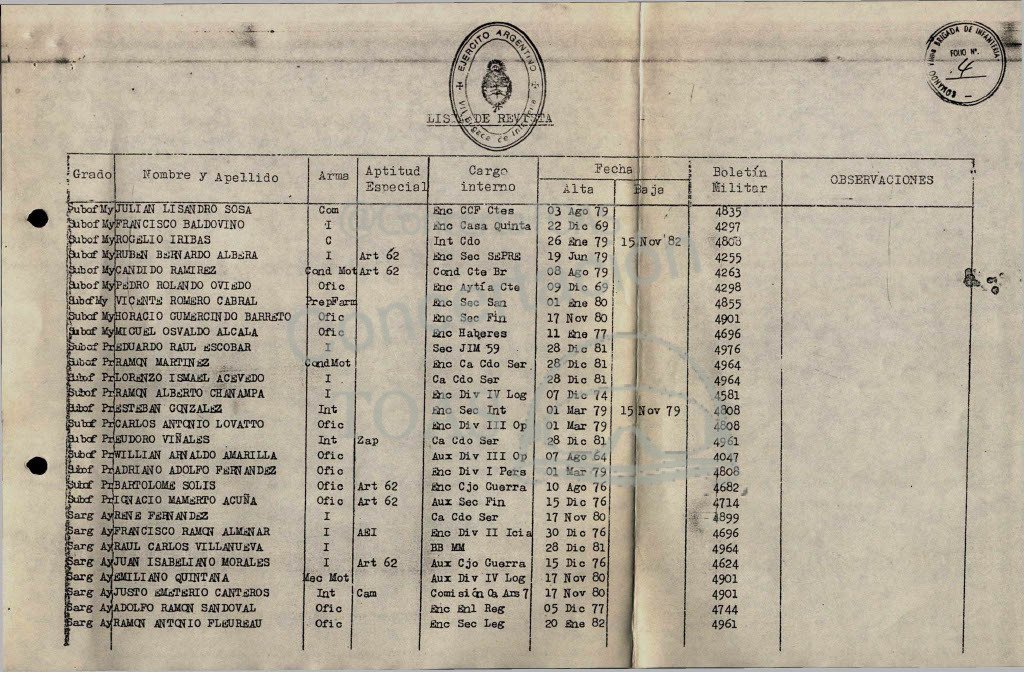 EJERCITO ARGENTINO
VII Brigada de Infantería
COMANDO BRIGADA DE INFANTERIA
FOLIO Nº.
4
LISTA DE REVISTA
Grado Nombre y Apellido Arma Aptitud Especial Cargo interno Fecha Alta Baja Boletín Militar OBSERVACIONES
Subof My JULIAN LISANDRO SOSA Com Enc CCF Ctes 03 Ago 79 4835
Subof My FRANCISCO BALDOVINO I Enc Casa Quinta 22 Dic 69 4297
Subof My ROGELIO IRIBAS C Int Cdo 26 Ene 79 15 Nov 82 4808
Subof My RUBEN BERNARDO ALBERA I Art 62 Enc Sec SEPRE 19 Jun 79 4255
Subof My CANDIDO RAMIREZ Cond Mot Art 62 Cond Cte Br 08 Ago 79 4263
Subof My PEDRO ROLANDO OVIEDO Ofic Enc Aytía Cte 09 Dic 69 4298
Subof My VICENTE ROMERO CABRAL PrepFarm Enc Sec San 01 Ene 80 4855
Subof My HORACIO GUMERCINDO BARRETO Ofic Enc Sec Fin 17 Nov 80 4901
Subof My MIGUEL OSVALDO ALCALA Ofic Enc Haberes 11 Ene 77 4696
Subof Pr EDUARDO RAUL ESCOBAR I Sec JIM 59 28 Dic 81 4976
Subof Pr RAMON MARTINEZ CondMot Enc Ca Cdo Ser 28 Dic 81 4964
Subof Pr LORENZO ISMAEL ACEVEDO I Ca Cdo Ser 28 Dic 81 4964
Subof Pr RAMON ALBERTO CHANAMPA I Enc Div IV Log 07 Dic 74 4581
Subof Pr ESTEBAN GONZALEZ Int Enc Sec Int 01 Mar 79 15 Nov 79 4808
Subof Pr CARLOS ANTONIO LOVATTO Ofic Enc Div III Op 01 Mar 79 4808
Subof Pr EUDORO VIÑALES Int Zap Ca Cdo Ser 28 Dic 81 4961
Subof Pr WILLIAN ARNALDO AMARILLA Ofic Aux Div III Op 07 Ago 64 4047
Subof Pr ADRIANO ADOLFO FERNANDEZ Ofic Enc Div I Pers 01 Mar 79 4808
Subof Pr BARTOLOME SOLIS Ofic Art 62 Enc Cjo Guerra 10 Ago 76 4682
Subof Pr IGNACIO MAMERTO ACUÑA Ofic Art 62 Aux Sec Fin 15 Dic 76 4714
Sarg Ay RENE FERNANDEZ I Ca Cdo Ser 17 Nov 80 4899
Sarg Ay FRANCISCO RAMON ALMENAR I AEI Enc Div II Icia 30 Dic 76 4696
Sarg Ay RAUL CARLOS VILLANUEVA I BB MM 28 Dic 81 4964
Sarg Ay JUAN ISABELIANO MORALES I Art 62 Aux Cjo Guerra 15 Dic 76 4624
Sarg Ay EMILIANO QUINTANA Mec Mot Aux Div IV Log 17 Nov 80 4901
Sarg Ay JUSTO EMETERIO CANTEROS Int Cam Comisión Ca Ars 7 17 Nov 80 4901
Sarg Ay ADOLFO RAMON SANDOVAL Ofic Enc Enl Reg 05 Dic 77 4744
Sarg Ay RAMON ANTONIO FLEUREAU Ofic Enc Sec Leg 20 Ene 82 4961